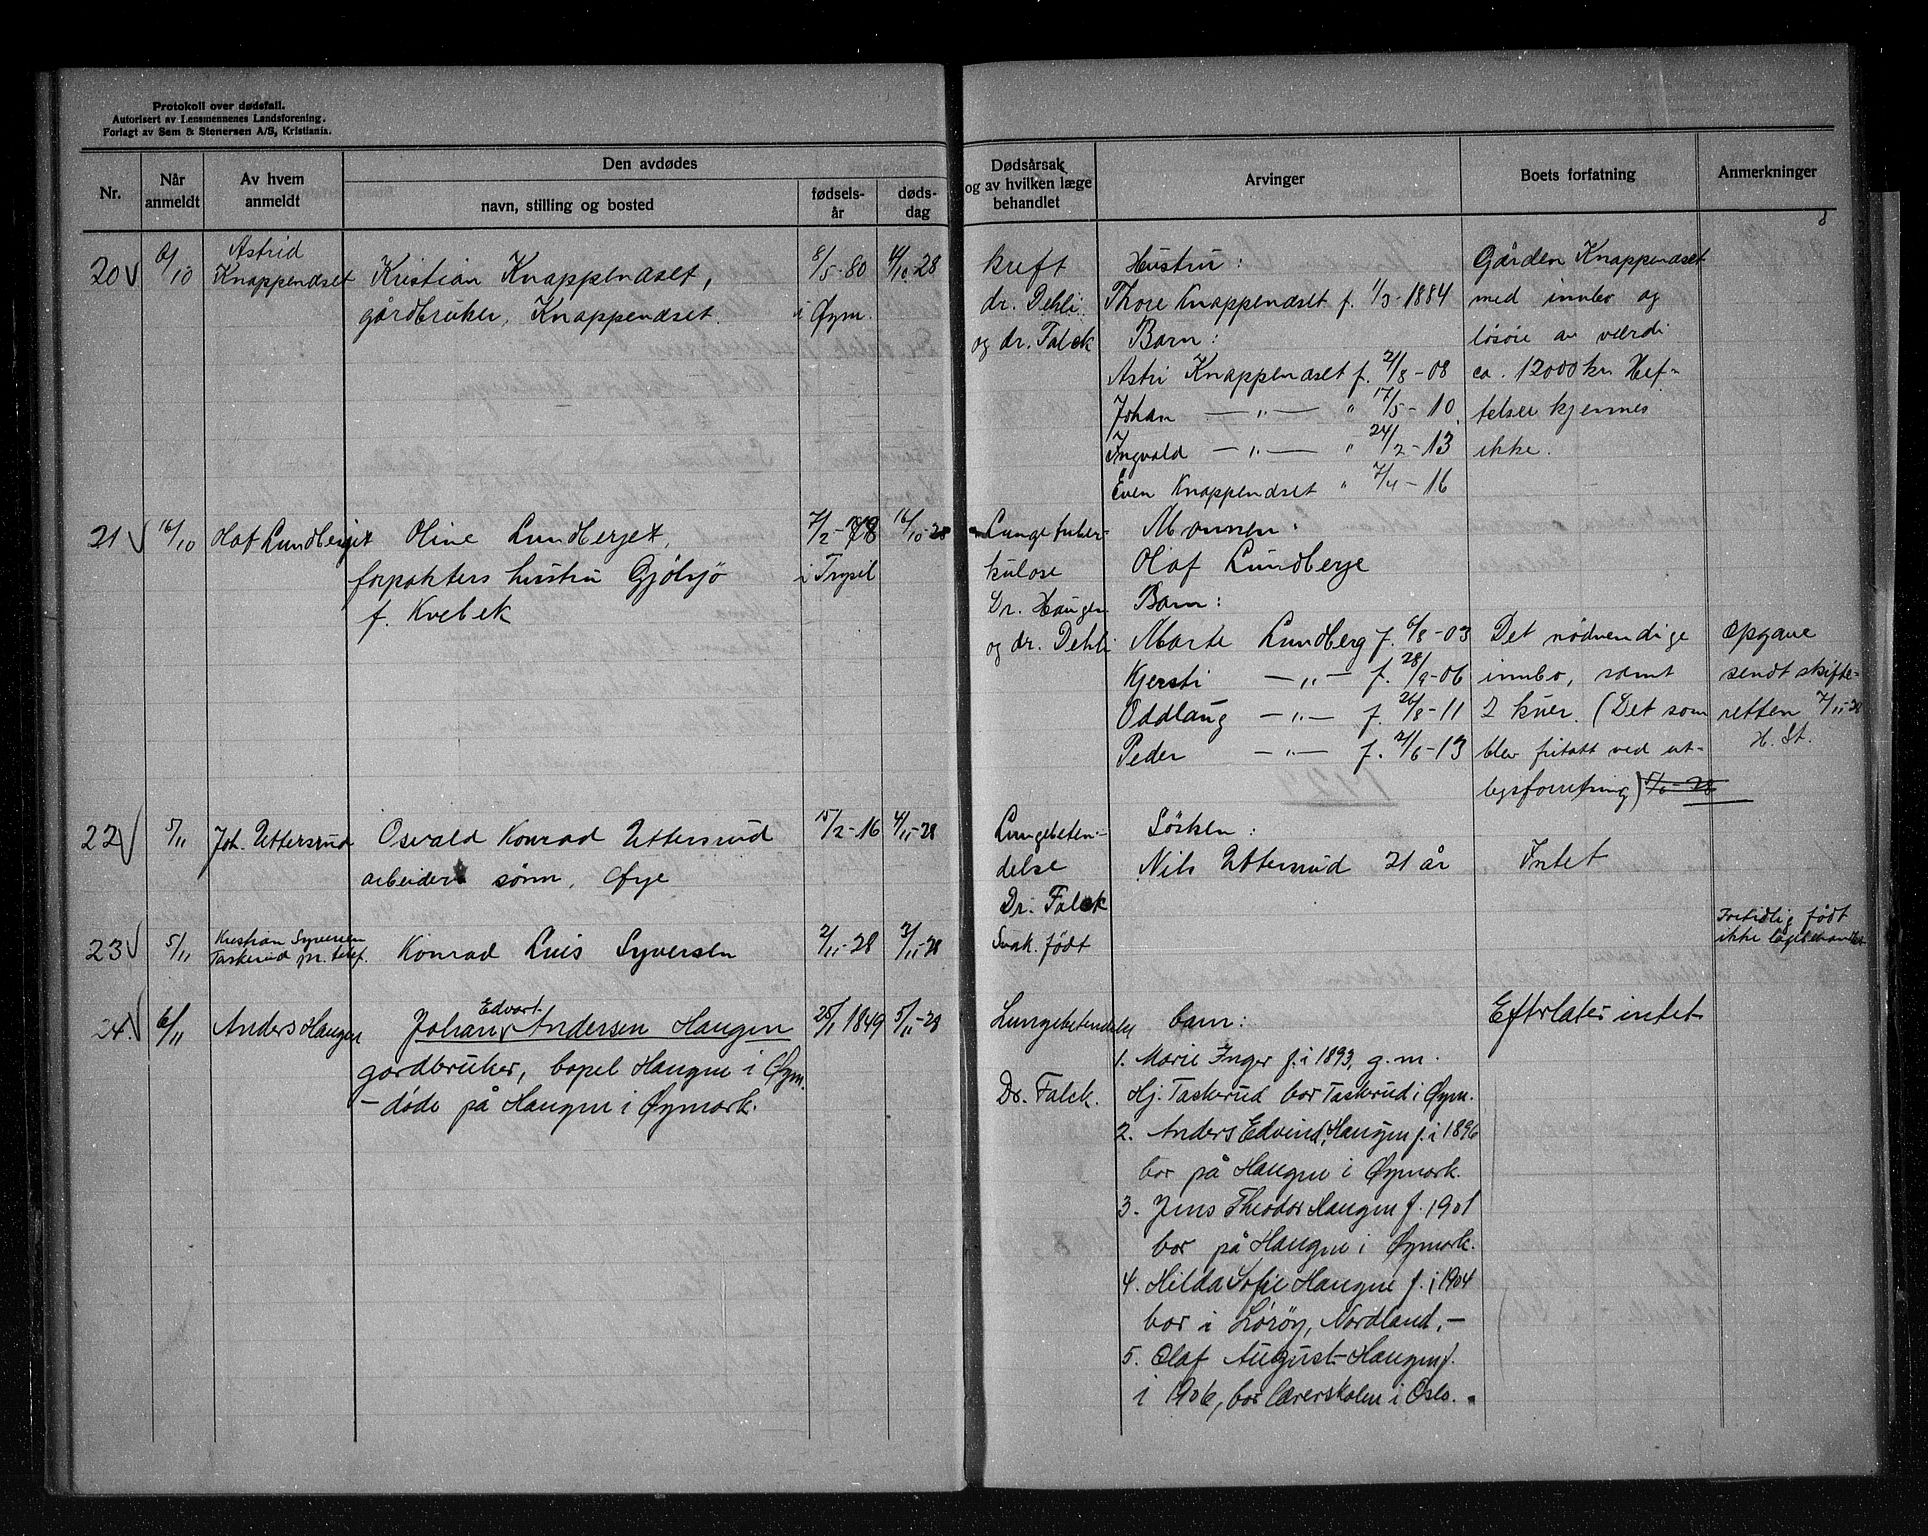 Protokoll over dødsfall.
Autorisert av Lensmennenes Landsforening.
Forlagt av Sem & Stenersen A/S, Kristiania.
Nr.
Når anmeldt
Av hvem anmeldt
Den avdødes
navn, stilling og bosted
fødsels-år
døds-dag
Dødsårsak og av hvilken læge behandlet
Arvinger
Boets forfatning
Anmerkninger
8
20 6/10 Astrid Knappendset
Kristian Knappendset, 8/5-80 4/10-28
gårdbruker, Knappendset. i Øym.
kreft
dr. Dehli
og dr. Falck
Hustru:
Thore Knappendset f. 1/3-1884
Barn:
Astri Knappendset f. 2/8-08
Johan — " — " 17/5-10
Ingvald — " — " 24/2-13
Even Knappendset " 7/4-16
Gården Knappendset
med innbo og
løsøie av værdi
ca. 12000 kr. Hef-
telser kjennes
ikke.
21 16/10 Olaf Lundberget
Oline Lundberget, 7/2-78 16/10-28
forpakters hustru Gjølsjø i Trysil
f. Kvebek
Lungetuber-
kulose
Dr. Haugen
og dr. Dehli
Mannen:
Olaf Lundberge
Barn:
Marte Lundberg f. 6/8-03
Kjersti — " — f. 28/9-06
Oddlaug — " — f. 26/8-11
Peder — " — f. 2/6-13
Det nødvendige
innbo, samt
2 kuer. (Det som
blev fritatt ved ut-
legsforretning) 5/6-28
Opgave
sendt skifte-
retten 7/11-28
H. St.
22 5/11 Joh. Uttersrud
Osvald Konrad Uttersrud 15/2-16 4/11-28
arbeider sønn, Øye
Lungebeten-
delse
Dr. Falck
Søsken:
Nils Uttersrud 21 år
Intet
23 5/11 Kristian Syversen
Taskerud pr. telef.
Konrad Luis Syversen 2/11-28 3/11-28
Svak født
Fortidlig født
ikke lægebehandlet
24. 6/11 Anders Haugen
Edvart
Johan Andersen Haugen 25/1 1849 5/11-28
gardbruker, bopel Haugne i Øym.
— døde på Haugne i Øymark.
Lungebetendelse
Dr. Falck.
barn:
1. Marie Inger f. i 1893, g.m.
Hj. Taskerud bor Taskerud i Øym.
2. Anders Edvind Haugen f. i 1896
bor på Haugne i Øymark.
3. Jens Theodor Haugen f. 1901
bor på Haugne i Øymark.
4. Hilda Sofie Haugne f. i 1904
bor i Lørøy, Nordland. —
5. Olaf August Haugen f.
i 1906, bor Lærerskolen i Oslo.
Efterlater intet